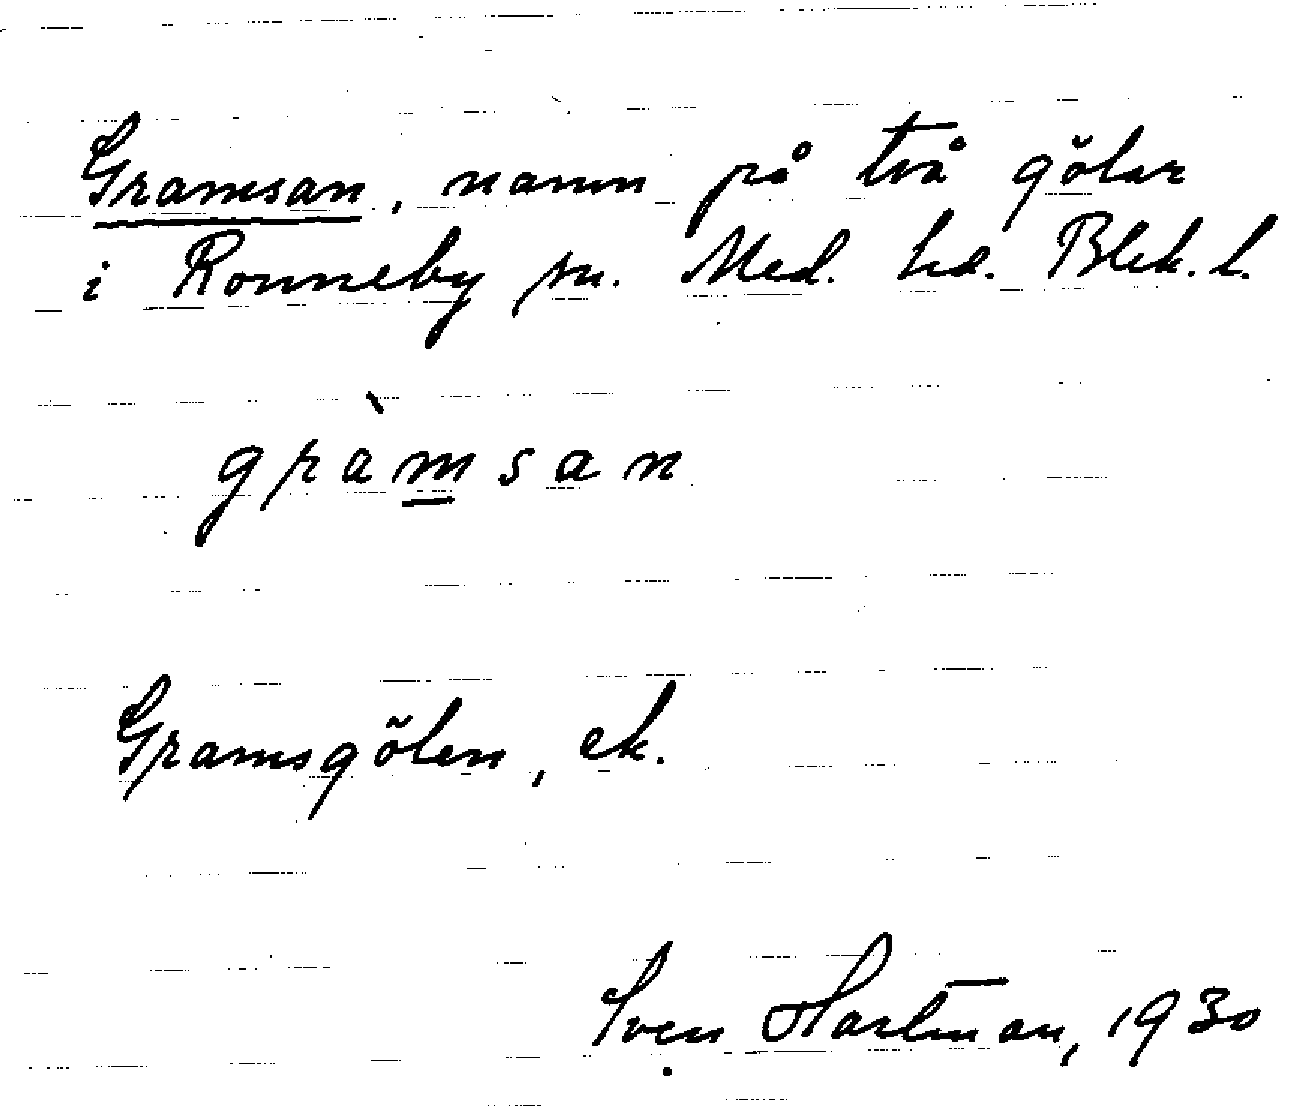 Gramsan, namn på två gölar
i Ronneby sn. Med. hd. Blek. l.
gràmsan
Gramsgölen, ek.
Sven Hartman, 1930